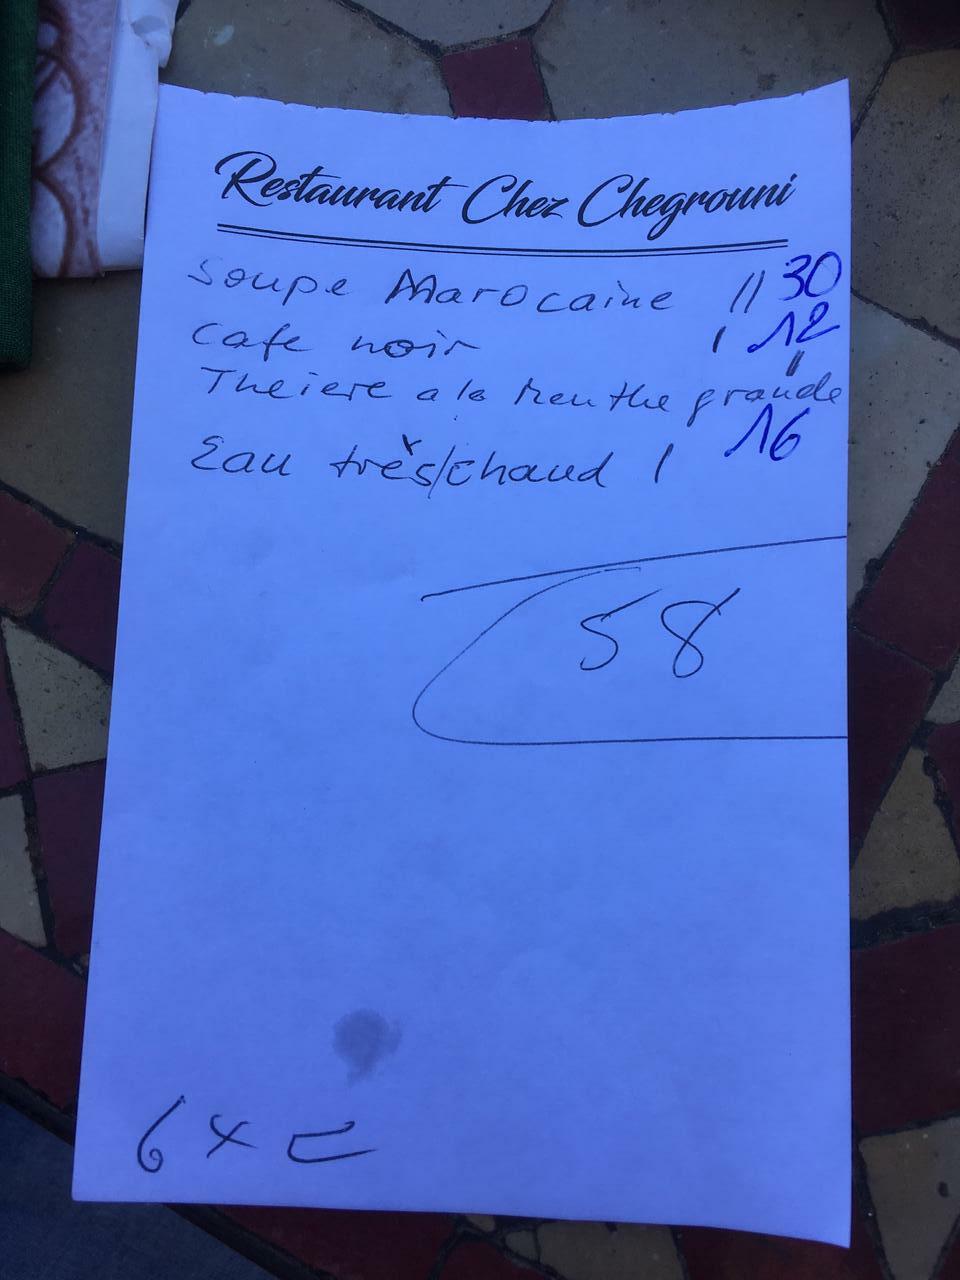 Restaurant Chez Chegrouni
Soupe Marocaine // 30
Cafe noir / 12
Theiere a la Menthe grande "
Eau très/chaud / 16
58
6 x